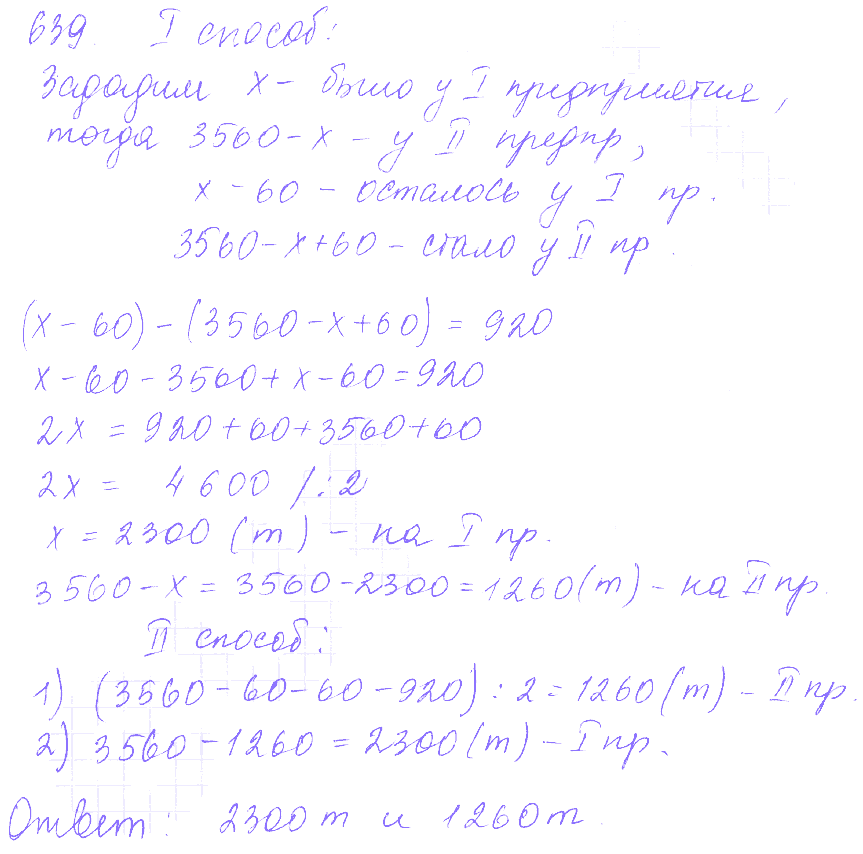 639. I способ:
Зададим x - было у I предприятия,
тогда 3560-x - у II предпр,
x - 60 - осталось у I пр.
3560-x+60 - стало у II пр.
(x - 60) - (3560-x+60) = 920
x-60-3560+x-60=920
2x = 920+60+3560+60
2x = 4600 /:2
x = 2300 (т) - на I пр.
3560-x = 3560-2300=1260(т) - на II пр.
II способ:
1) (3560-60-60-920):2=1260(т) - II пр.
2) 3560-1260=2300(т) - I пр.
Ответ: 2300т и 1260т.